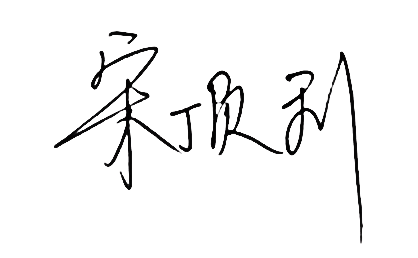 宋顶利